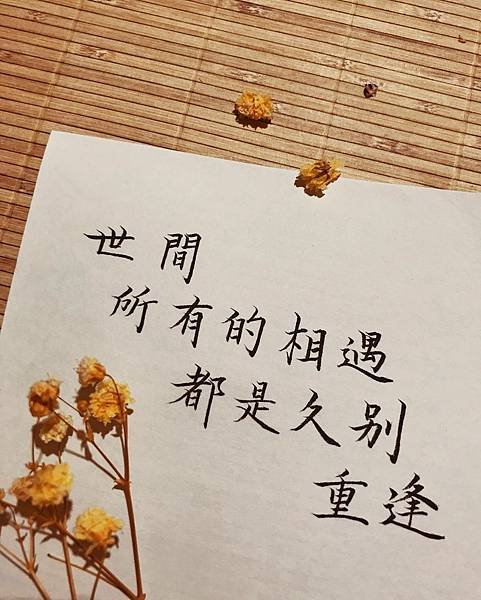 世間
所有的相遇
都是久別
重逢